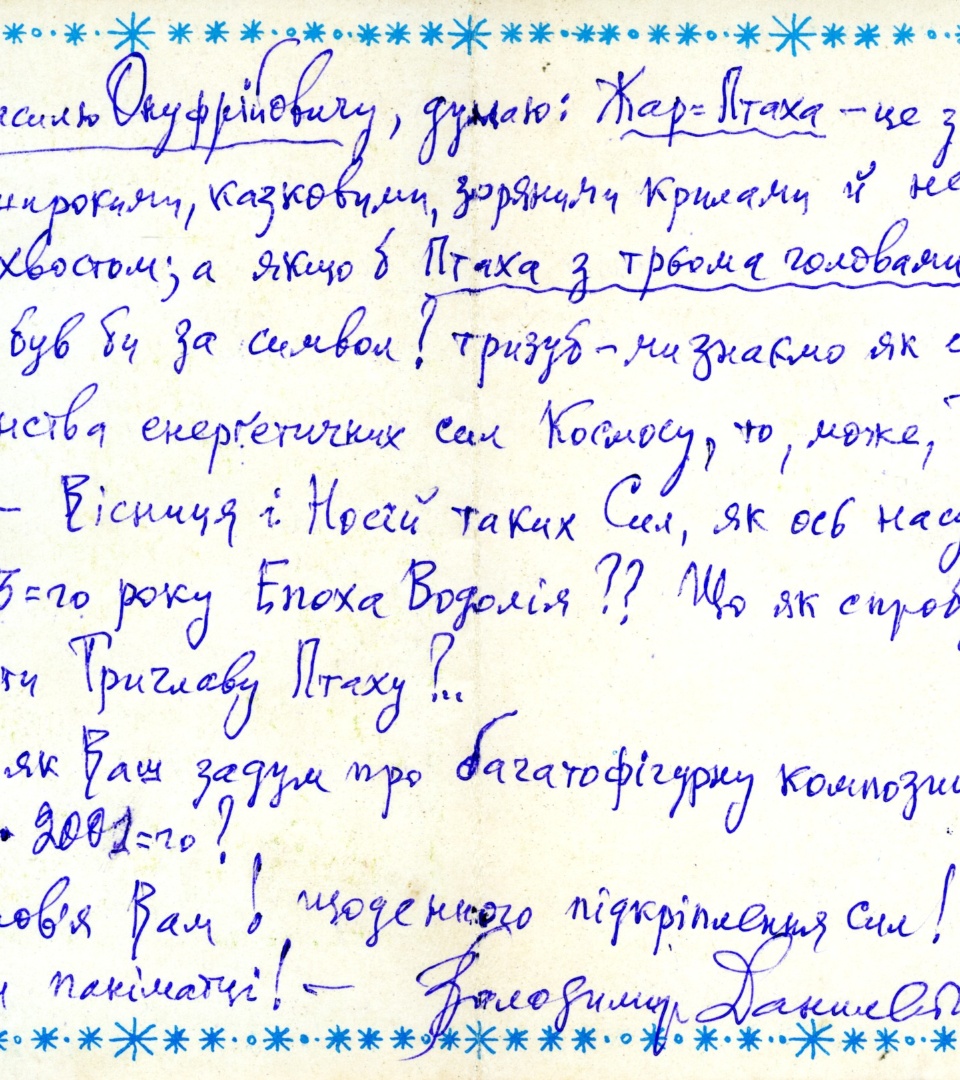 асилю Онуфрійовичу, думаю: Жар=Птаха – це з
широкими, казковими, зоряними крилами й не
хвостом; а якщо б Птаха з трьома головами
був би за символ! тризуб – ми знаємо як с
нства енергетичних сил Космосу, то, може,
– Вісниця і Носій таких Сил, як ось нас
5=го року Епоха Водолія?? Що як спроб
ти Триглаву Птаху?..
як Ваш задум про багатофігурну компози
2001=го?
ов'я Вам! щоденного підкріплення сил!
паніматці! – Володимир